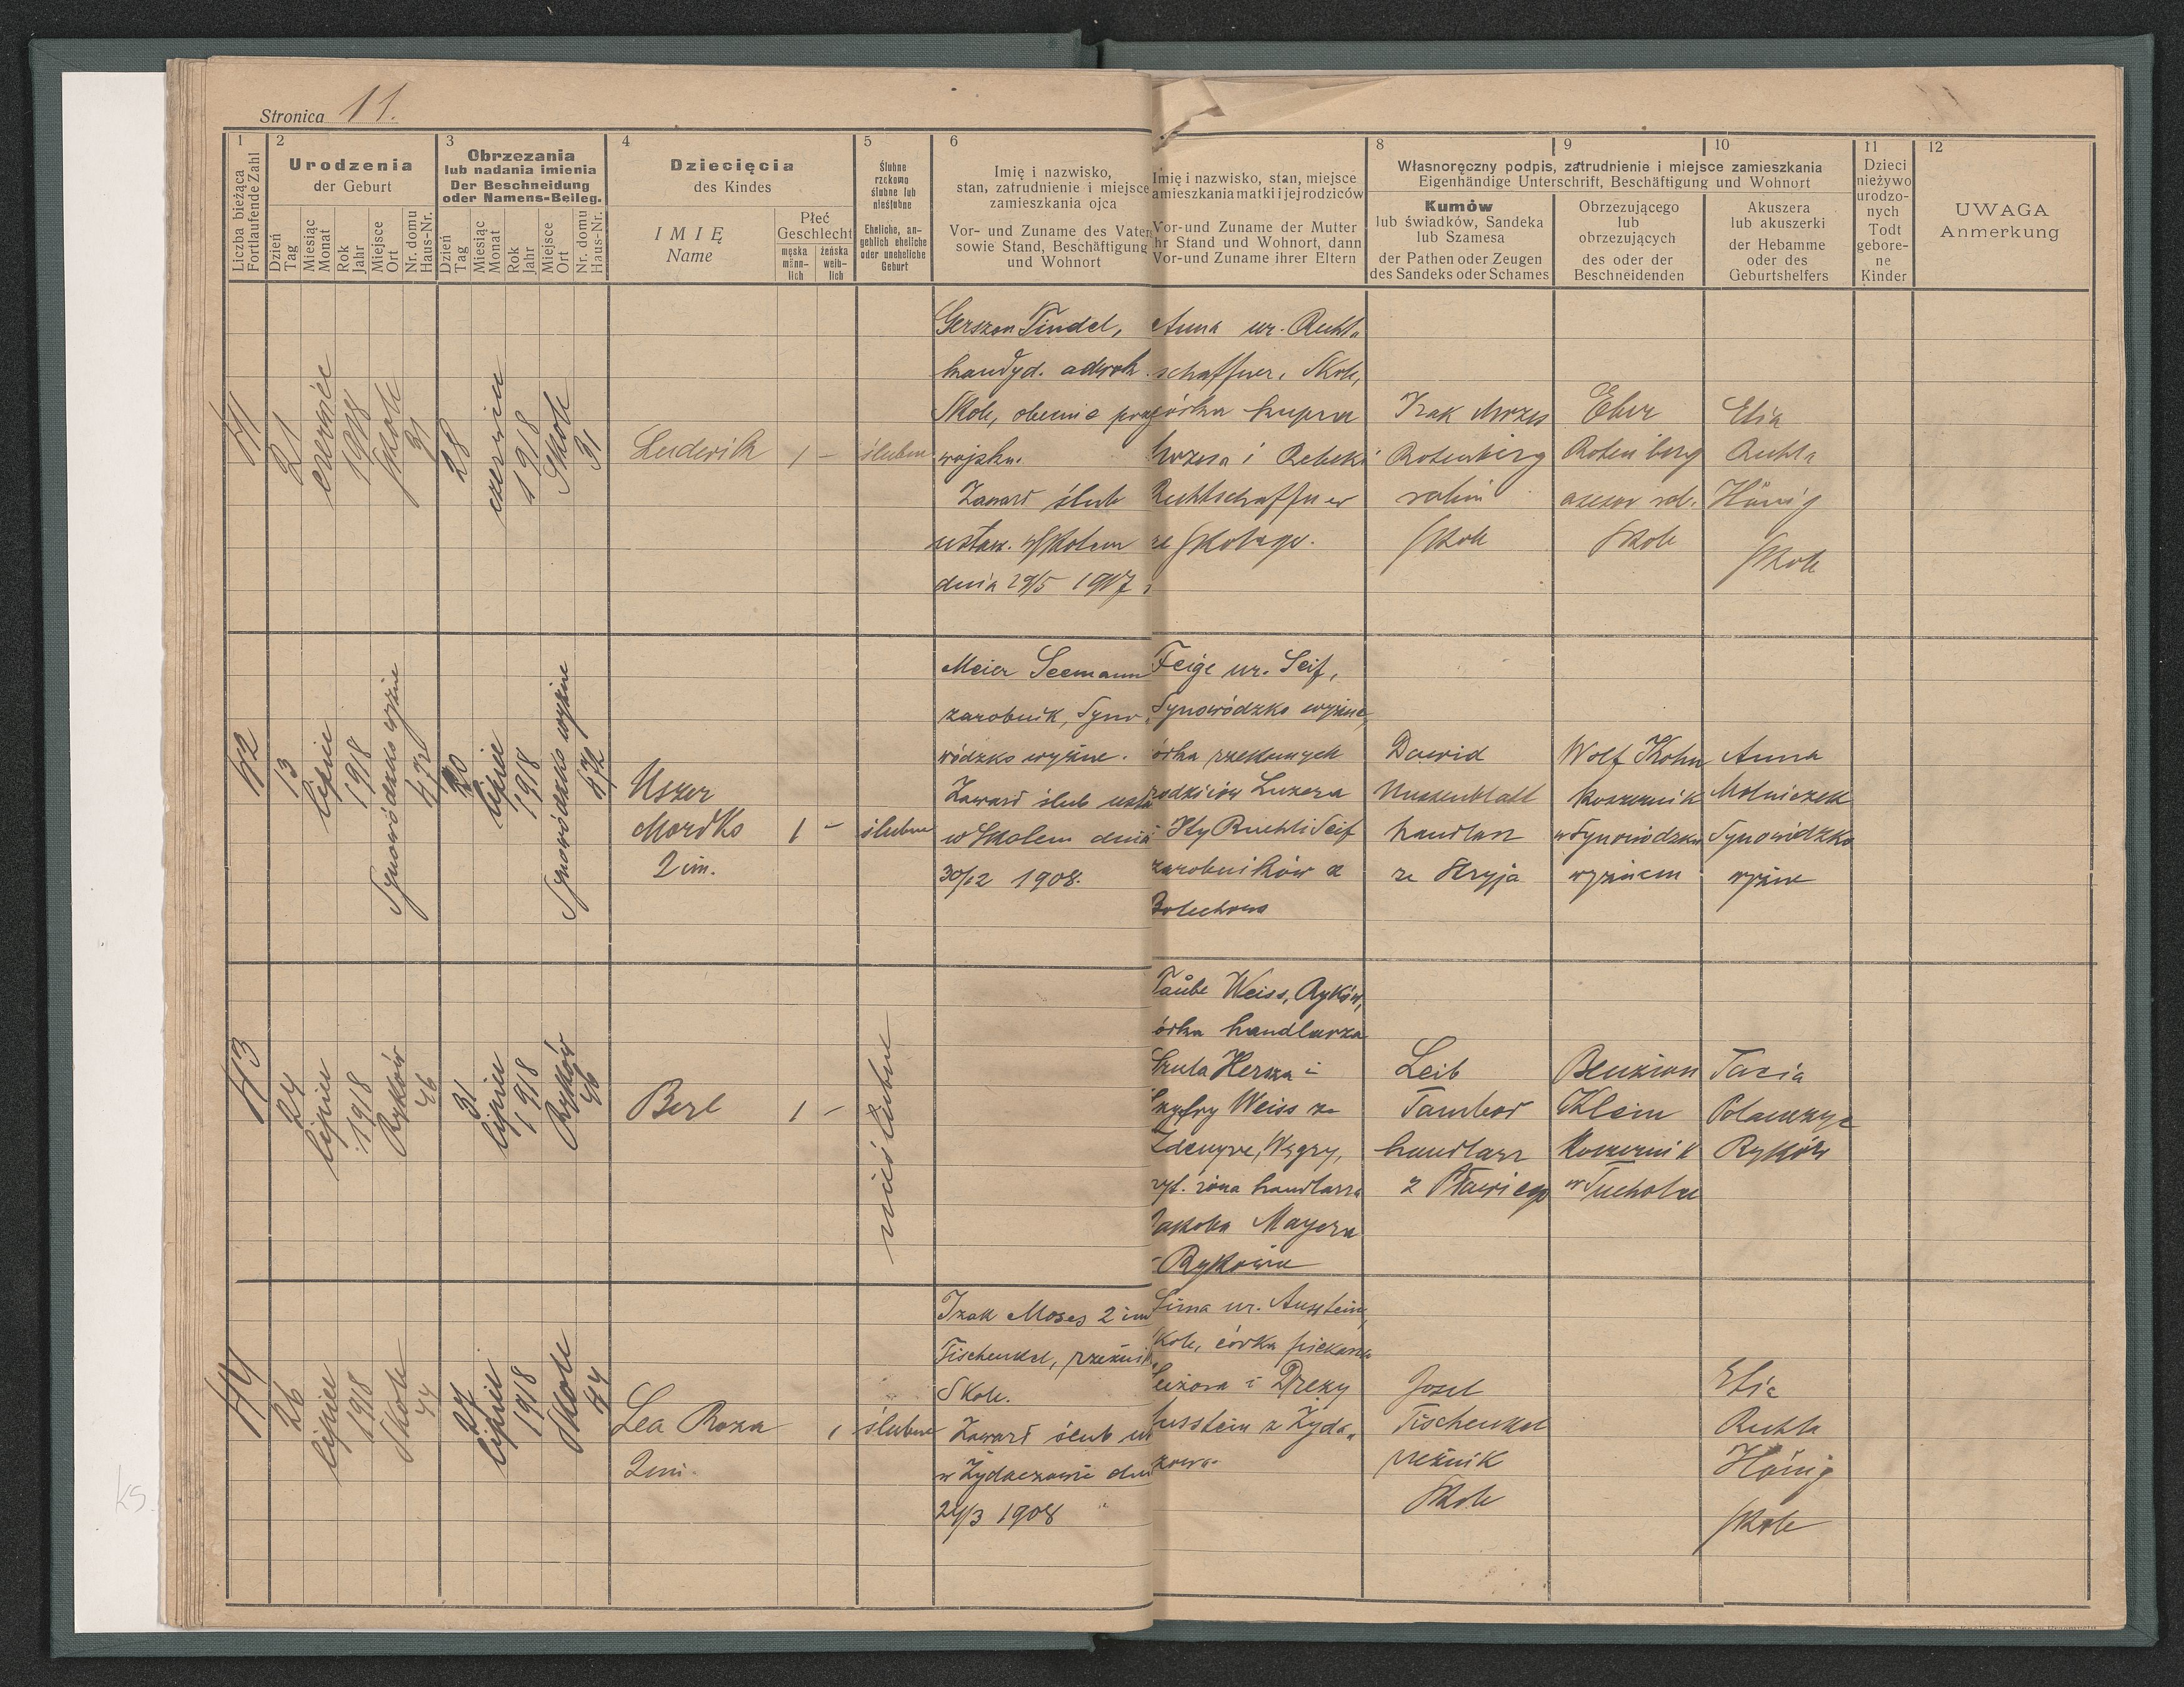 Stronica 11.
1
Liczba bieżąca
Fortlaufende Zahl
2
Urodzenia
der Geburt
Dzień
Tag
Miesiąc
Monat
Rok
Jahr
Miejsce
Ort
Nr. domu
Haus-Nr.
3
Obrzezania
lub nadania imienia
Der Beschneidung
oder Namens-Beileg.
Dzień
Tag
Miesiąc
Monat
Rok
Jahr
Miejsce
Ort
Nr. domu
Haus-Nr.
4
Dziecięcia
des Kindes
IMIĘ
Name
Płeć
Geschlecht
męska
männ-
lich
żeńska
weib-
lich
5
Ślubne
rzekomo
ślubne lub
nieślubne
Eheliche, an-
geblich eheliche
oder uneheliche
Geburt
6
Imię i nazwisko,
stan, zatrudnienie i miejsce
zamieszkania ojca
Vor- und Zuname des Vaters
sowie Stand, Beschäftigung
und Wohnort
Imię i nazwisko, stan, miejsce
amieszkania matki i jej rodziców
Vor- und Zuname der Mutter
hr Stand und Wohnort, dann
Vor- und Zuname ihrer Eltern
8
9
10
Własnoręczny podpis, zatrudnienie i miejsce zamieszkania
Eigenhändige Unterschrift, Beschäftigung und Wohnort
Kumów
lub świadków, Sandeka
lub Szamesa
der Pathen oder Zeugen
des Sandeks oder Schames
Obrzezującego
lub
obrzezujących
des oder der
Beschneidenden
Akuszera
lub akuszerki
der Hebamme
oder des
Geburtshelfers
11
Dzieci
nieżywo
urodzo-
nych
Todt
gebore-
ne
Kinder
12
UWAGA
Anmerkung
41
21
czerwiec
1918
Skole
31
28
czerwiec
1918
Skole
31
Ludwik
1
–
ślubne
Gerszon Tindel,
kandyd. adwok.
Skole, obecnie przy
wojsku.
Zawarł ślub
ustaw. w Skolem
dnia 29/5 1917
Anna ur. Rechts
schaffner, Skole,
córka kupca
Mozesa i Rebeki
Rechtschaffner
ze Skolego.
Izak Mozes
Rotenberg
rabin
Skole
Eber
Rotenberg
asesor rab.
Skole
Elia
Ruchla
Hönig
Skole
42
13
lipiec
1918
Synowódzko wyżne
472
20
lipiec
1918
Synowódzko wyżne
472
Uszer
Mordko
2 im.
1
–
ślubne
Meier Seemann
zarobnik, Syno-
wódzko wyżne.
Zawarł ślub usta
w Skolem dnia
30/12 1908.
Feige ur. Seif,
Synowódzko wyżne,
córka rzekomych
rodziców Luzera
i Ity Ruchli Seif
zarobników z
Bolechowa
Dawid
Nussenblatt
handlarz
ze Stryja
Wolf Kohn
koszernik
w Synowódzku
wyżnem
Anna
Molniczek
Synowódzko
wyżne
43
24
lipiec
1918
Ryków
46
31
lipiec
1918
Ryków
46
Berl
1
–
nieślubne
Taube Weiss, Ryków,
córka handlarza
Szula Hersza i
Szyfry Weiss ze
Zdenyve, Węgry,
ryt. żona handlarza
Jakoba Mayera
Rykowie
Leib
Tambor
handlarz
z Pławiego
Benzion
Klein
koszernik
w Tucholce
Tacia
Polanczyc
Ryków
44
26
lipiec
1918
Skole
44
27
lipiec
1918
Skole
44
Lea Roza
2 im.
1
ślubne
Izak Moses 2 im
Tischenkel, rzeźnik
Skole.
Zawarł ślub
w Żydaczowie dnia
24/3 1908
Sima ur. Ausstein,
Skole, córka piekarza
Leizora i Drezy
Ausstein z Żyda-
czowa.
Josel
Tischenkel
rzeźnik
Skole
Elia
Ruchla
Hönig
Skole
ks.